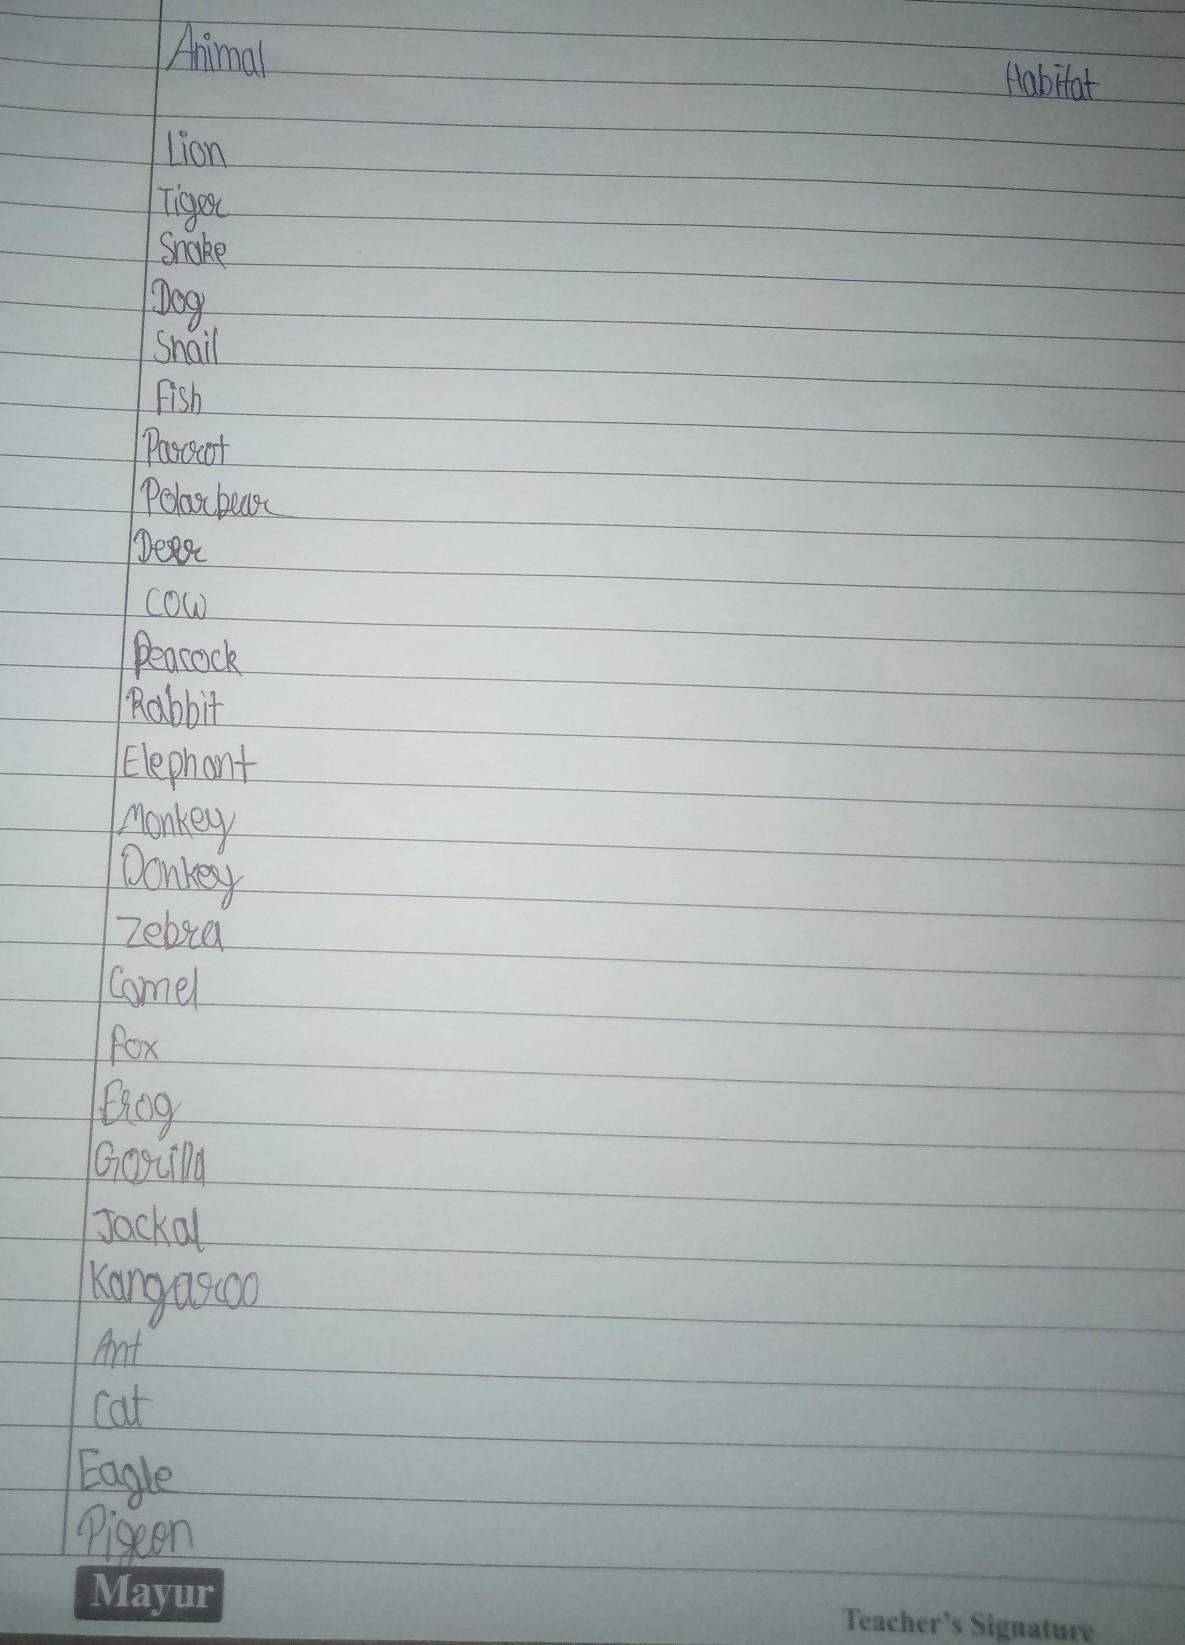 Animal
Habitat
Lion
Tiger
Snake
Dog
Snail
Fish
Parrot
Polar bear
Deer
cow
Peacock
Rabbit
Elephant
Monkey
Donkey
Zebra
Camel
fox
Frog
Gorilla
Jackal
Kangaroo
Ant
cat
Eagle
Pigeon
Mayur
Teacher's Signature